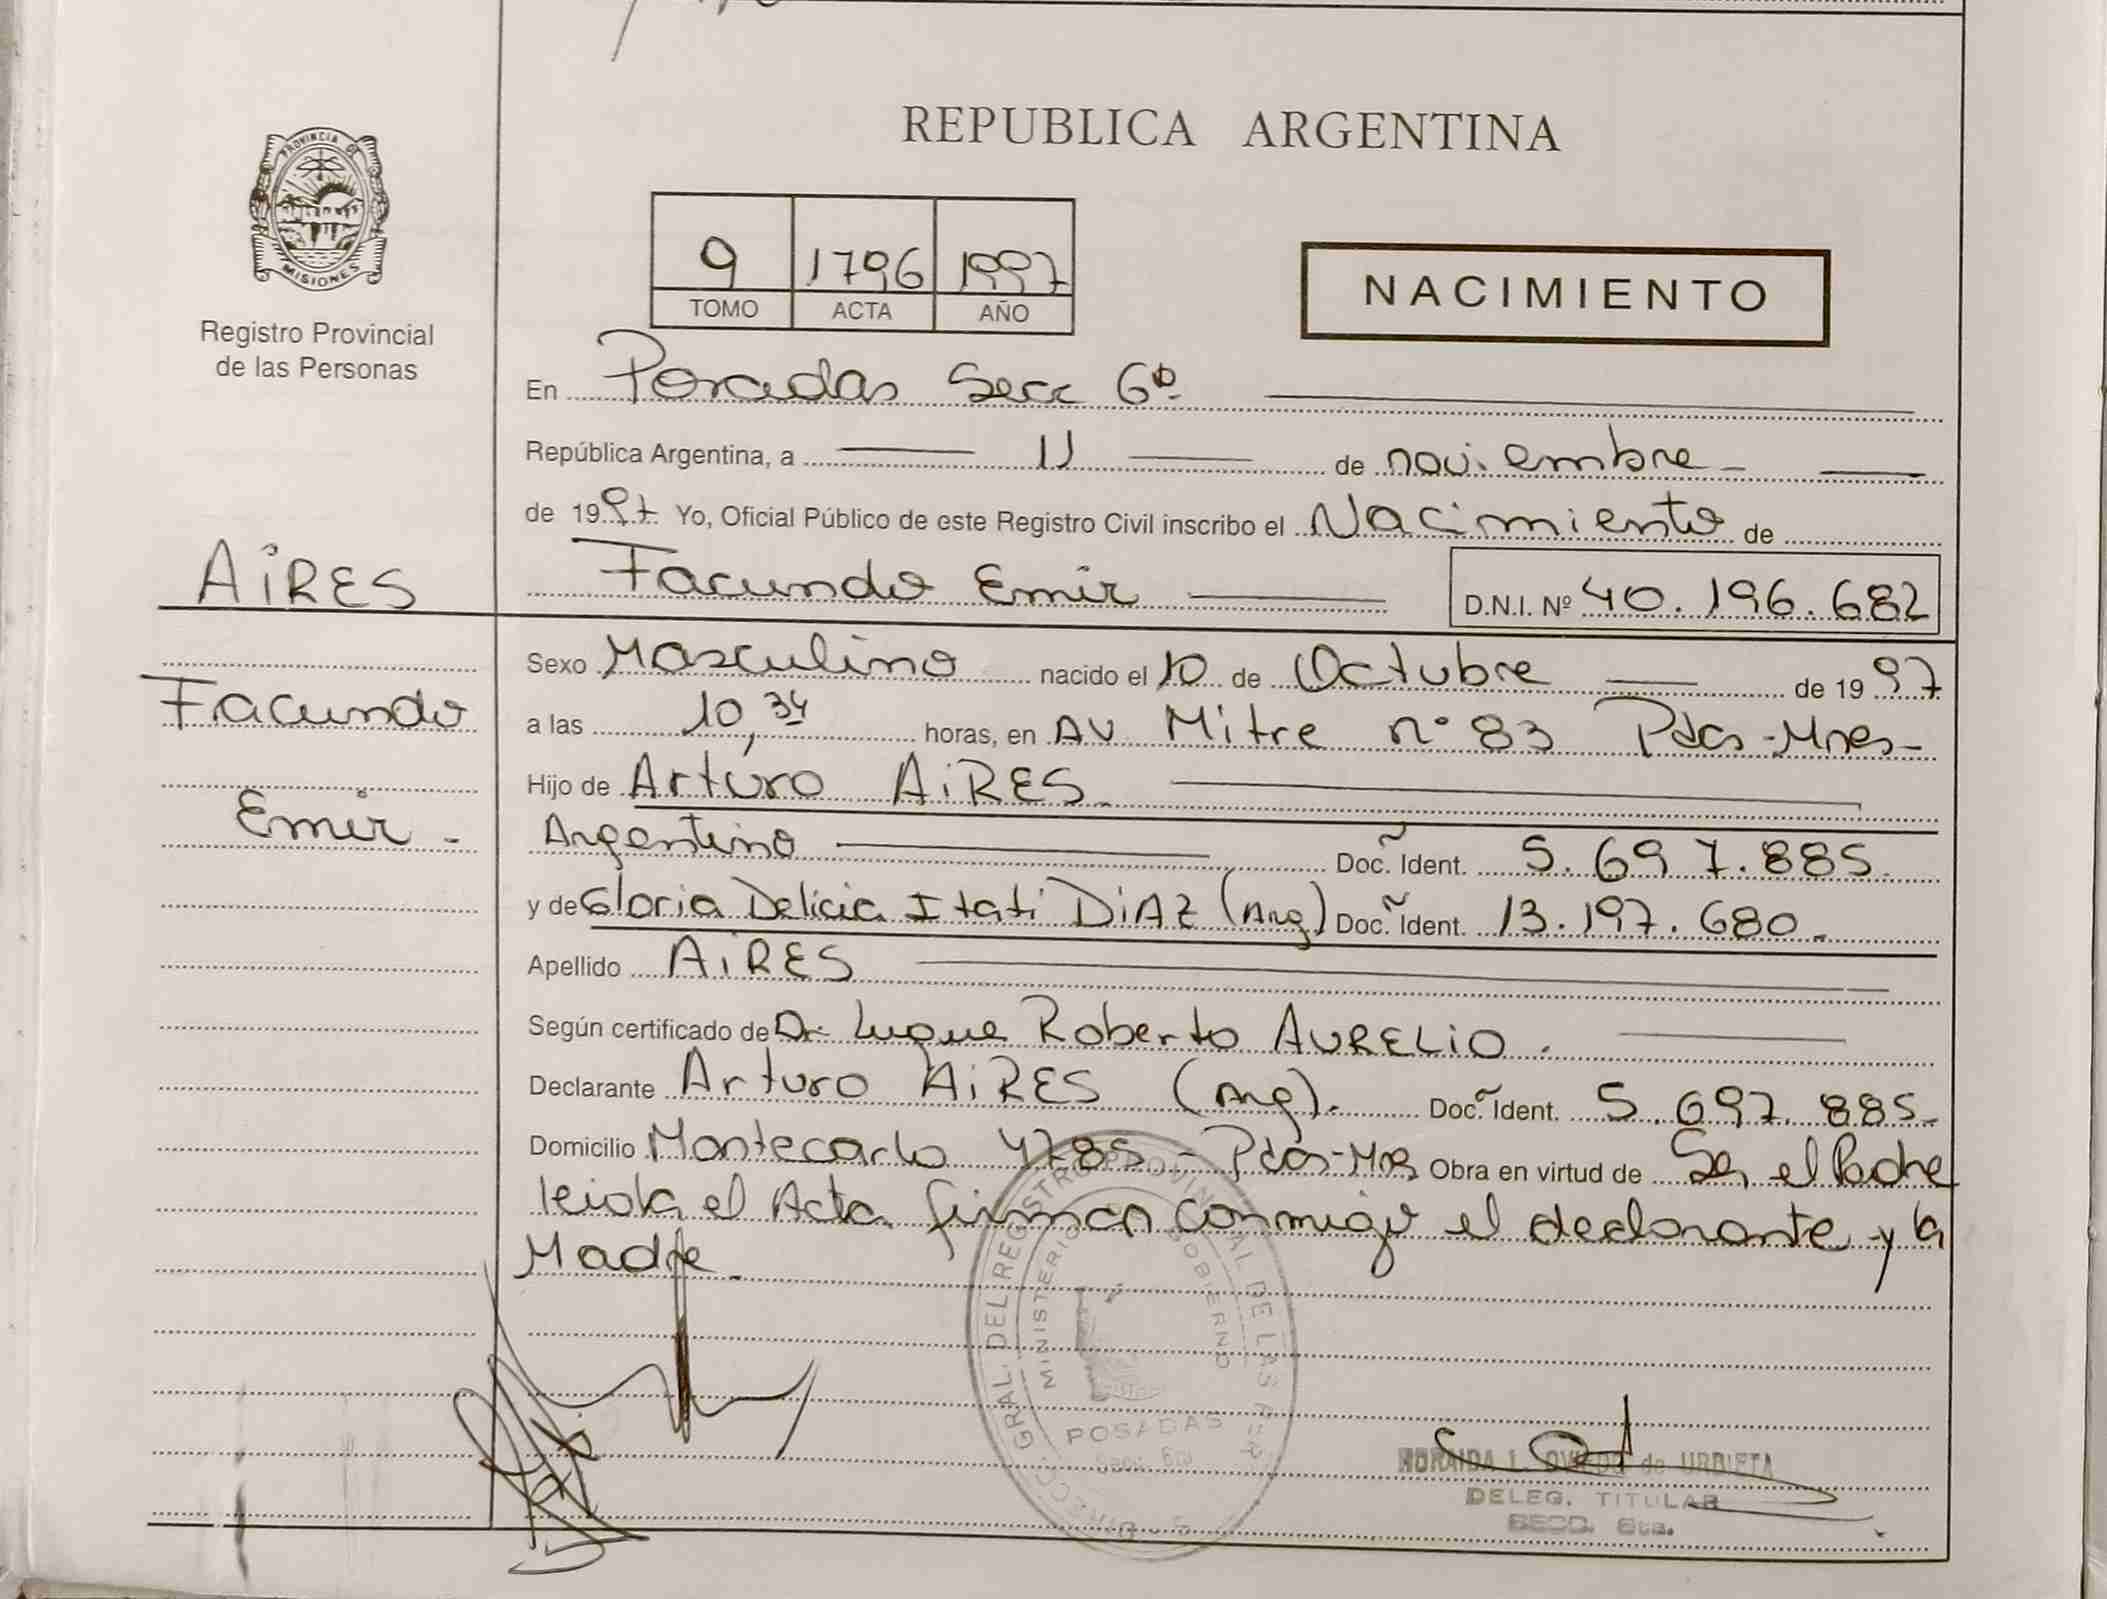 REPUBLICA ARGENTINA
PROVINCIA DE
MISIONES
Registro Provincial
de las Personas
9 1796 1997
TOMO ACTA AÑO
NACIMIENTO
En Posadas Secc 6º
República Argentina, a 11 de noviembre
de 1997 Yo, Oficial Público de este Registro Civil inscribo el Nacimiento de
AiRES
Facundo Emir D.N.I. Nº 40.196.682
Sexo Masculino nacido el 10 de Octubre de 1997
Facundo
a las 10,34 horas, en AV Mitre nº 83 Pdas-Mnes-
Hijo de Arturo AiRES
Emir -
Argentino Doc. Ident. 5.697.885.
y de Gloria Delicia Itati DiAZ (Arg) Doc. Ident. 13.197.680.
Apellido AiRES
Según certificado de Dr Luque Roberto AURELiO.
Declarante Arturo AiRES (Arg). Doc. Ident. 5.697.885-
Domicilio Montecarlo 4785 - Pdas-Mnes Obra en virtud de Ser el Padre
leida el Acta firman conmigo el declarante y la
Madre.
DIRECC. GRAL. DEL REGISTRO PROVINCIAL DE LAS PER
MINISTERIO GOBIERNO
POSADAS
Secc. 6ta
L. OVIEDO de URBIETA
DELEG. TITULAR
SECC. 6ta.